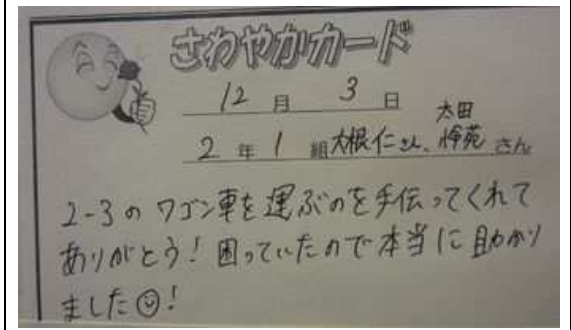 さわやかカード
12月3日
2年1組大根仁さん、太田怜苑さん
2-3のワゴン車を運ぶのを手伝ってくれて
ありがとう!困っていたので本当に助かり
ました☺!